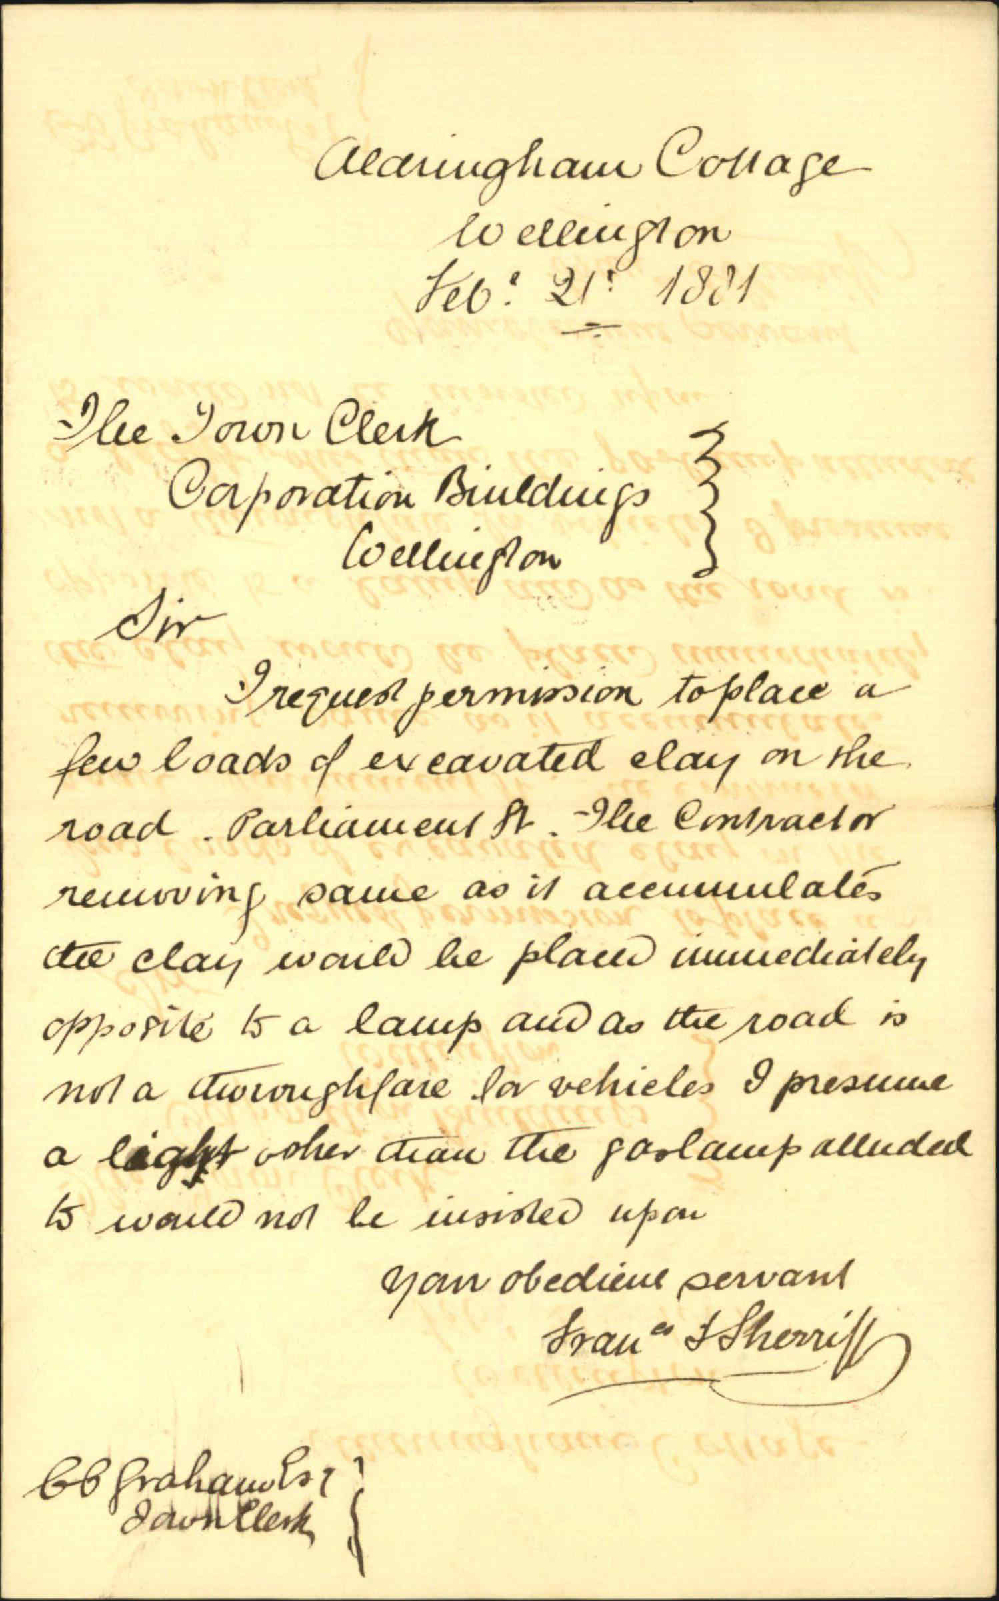 Aldringham Cottage
Wellington
Feb. 21st 1881
The Town Clerk
Corporation Buildings
Wellington
Sir
I request permission to place a
few loads of excavated clay on the
road. Parliament St. The Contractor
removing same as it accumulates
the clay would be placed immediately
opposite to a lamp and as the road is
not a thoroughfare for vehicles I presume
a light other than the gaslamp alluded
to would not be insisted upon
Your obedient servant
Frans. J Sherriff
Graham Esq
Town Clerk